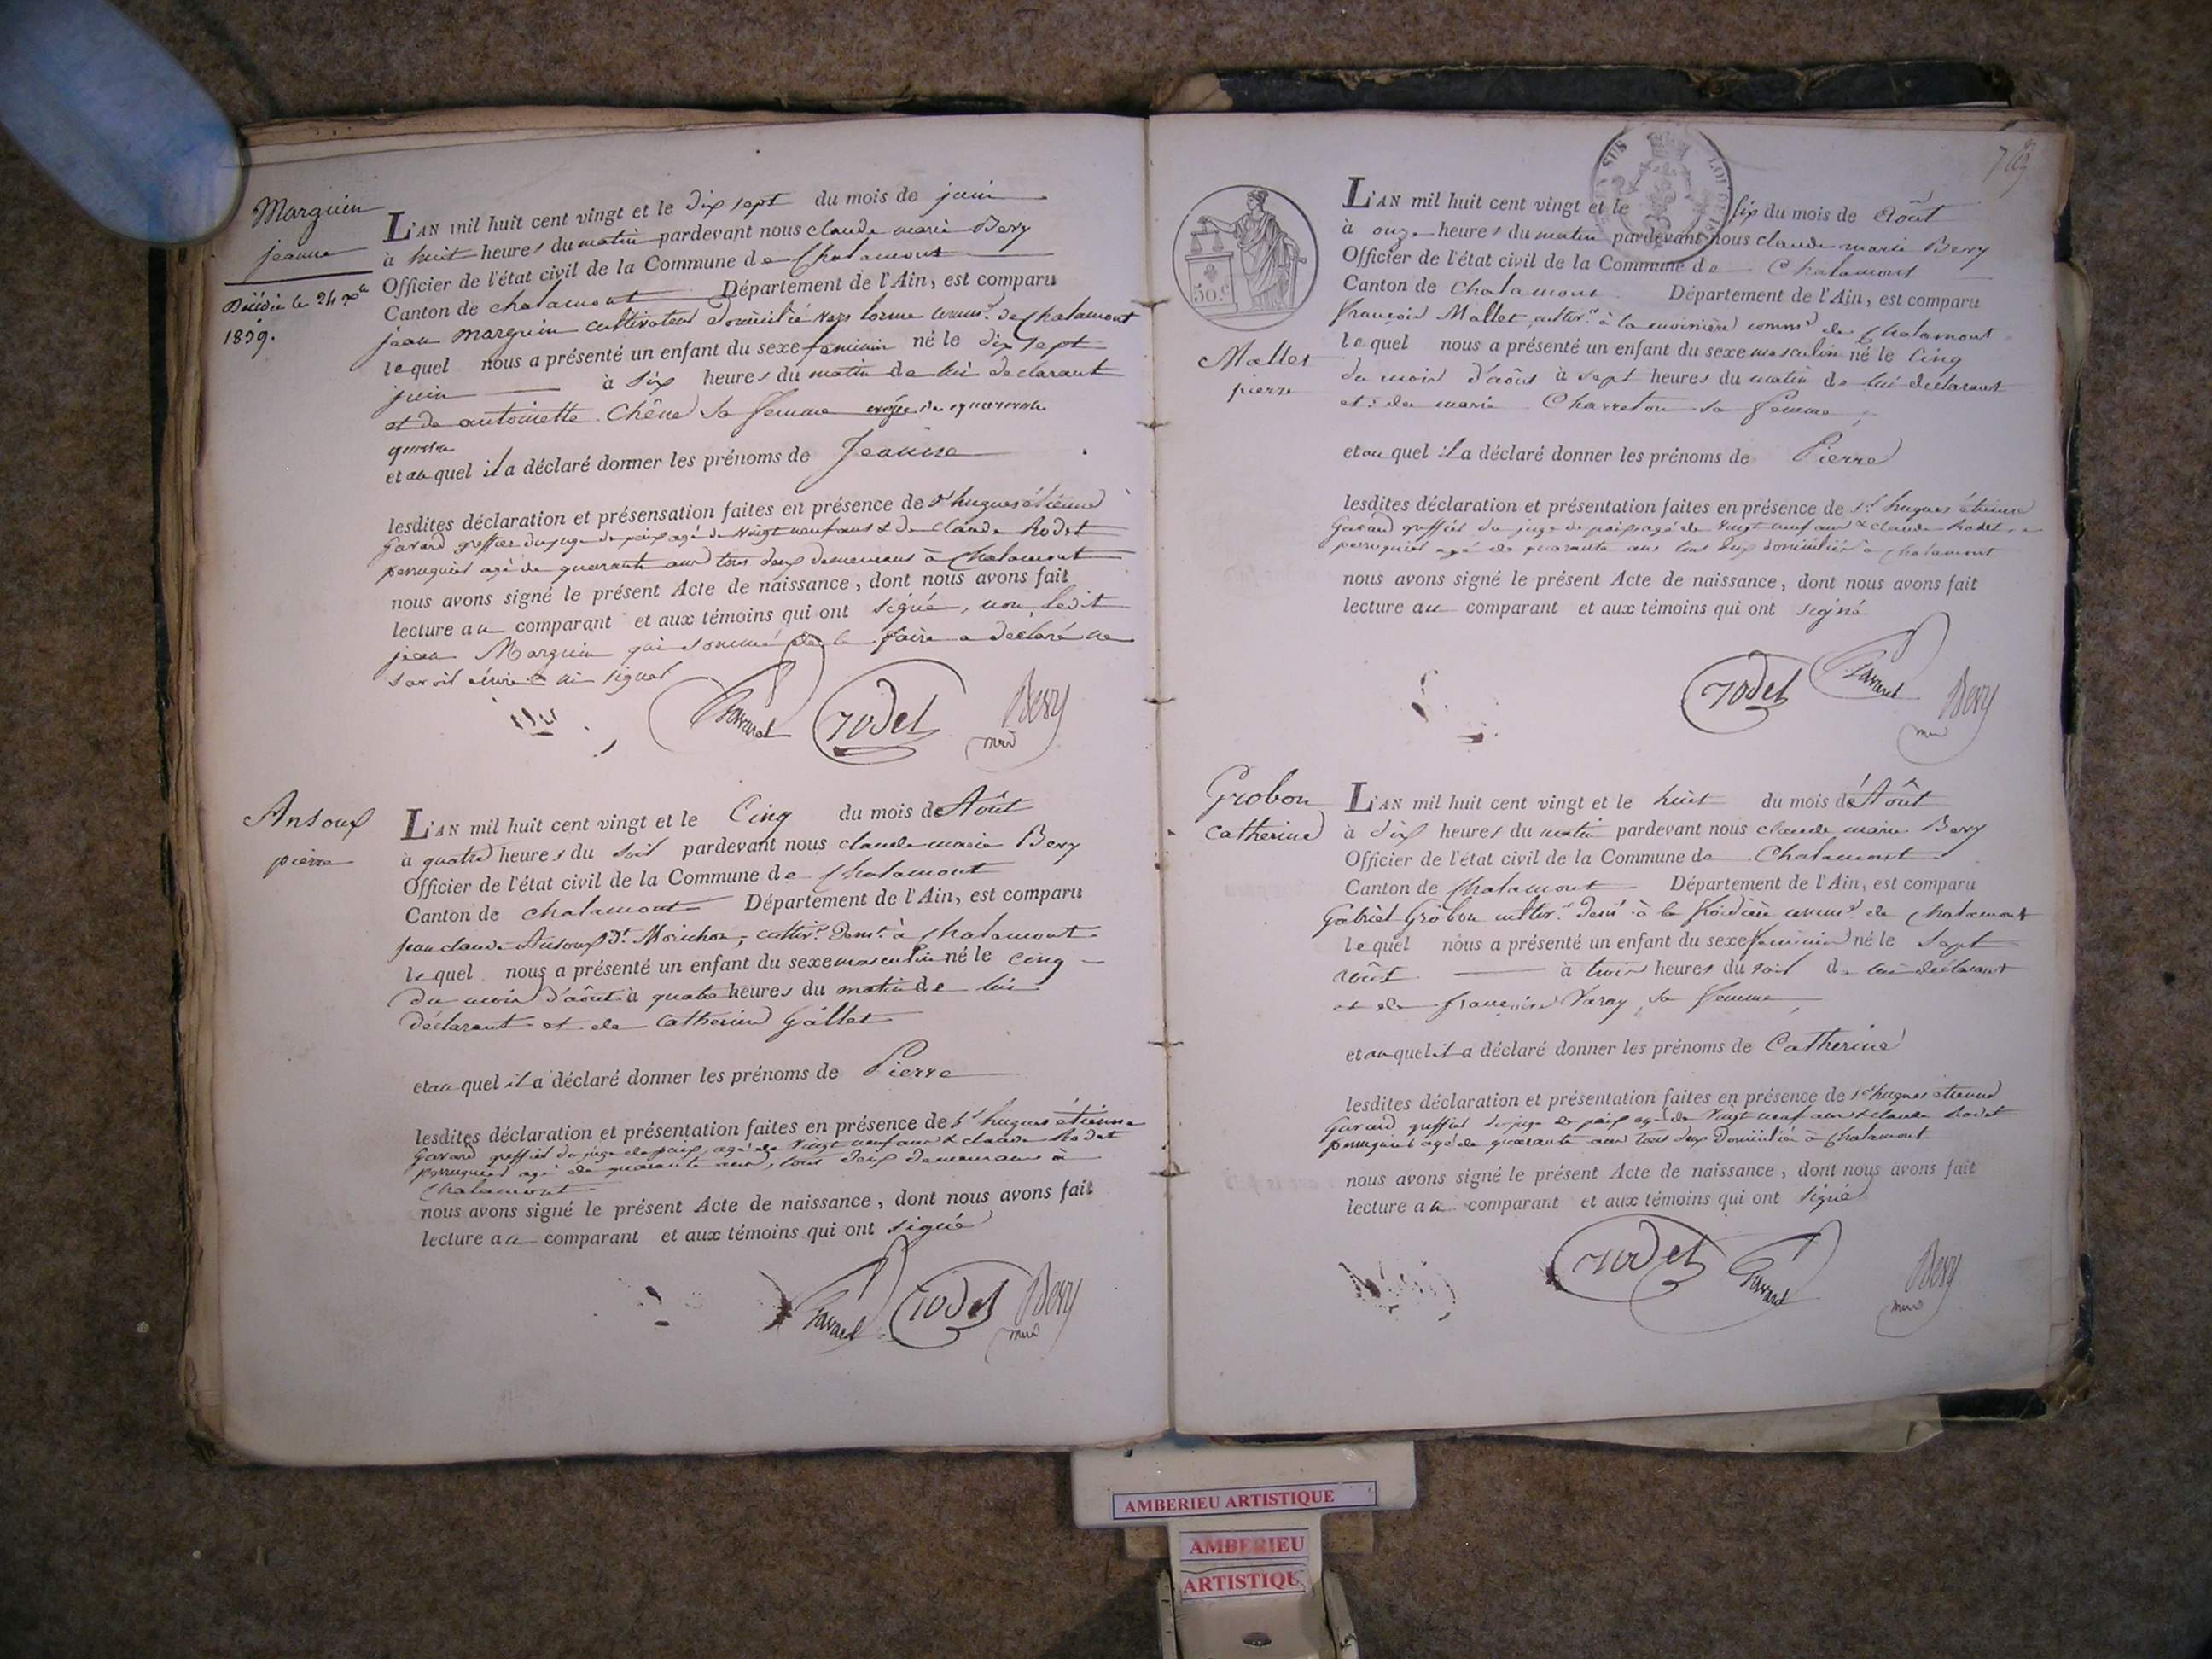 Marguin
jeanne
Décédée le 24 Xbre
1859.
L'AN mil huit cent vingt et le dix sept du mois de juin
à huit heures du matin pardevant nous claude marie Bery
Officier de l'état civil de la Commune de Chalamont
Canton de chalamont Département de l'Ain, est comparu
jean marguin cultivateur domicilié commne. de Chalamont
lequel nous a présenté un enfant du sexe feminin né le dix sept
juin à six heures du matin de lui déclarant
et de antoinette Chêne sa femme
et au quel il a déclaré donner les prénoms de Jeanne
lesdites déclaration et présensation faites en présence de sr hugues étienne
Gavand greffier du juge de paix agé de vingt neuf ans & de Claude Rodet
perruquier agé de quarante ans tous deux demeurans à Chalamont
nous avons signé le présent Acte de naissance, dont nous avons fait
lecture au comparant et aux témoins qui ont signé, non ledit
jean Marguin qui sommé de le faire a déclaré ne
savoir écrire ni signer
Gavand Rodet Bery
mre
Ansoux
pierre
L'AN mil huit cent vingt et le Cinq du mois de Août
à quatre heures du soir pardevant nous claude marie Bery
Officier de l'état civil de la Commune de Chalamont
Canton de chalamont Département de l'Ain, est comparu
jean claude Ansoux dt. Morichon, cultivr. demt. à Chalamont
lequel nous a présenté un enfant du sexe masculin né le cinq
du mois d'août à quatre heures du matin de lui
déclarant et de Catherine Gallet
et au quel il a déclaré donner les prénoms de Pierre
lesdites déclaration et présentation faites en présence de sr hugues étienne
Gavand greffier du juge de paix, agé de vingt neuf ans & claude Rodet
perruquier agé de quarante ans, tous deux demeurans à
Chalamont
nous avons signé le présent Acte de naissance, dont nous avons fait
lecture au comparant et aux témoins qui ont signé
Gavand Rodet Bery
mre
50.c
Mallet
pierre
L'AN mil huit cent vingt et le six du mois de Août
à onze heures du matin pardevant nous claude marie Bery
Officier de l'état civil de la Commune de Chalamont
Canton de Chalamont Département de l'Ain, est comparu
françois Mallet, cultivr. à la commne de Chalamont
lequel nous a présenté un enfant du sexe masculin né le Cinq
du mois d'août à sept heures du matin de lui déclarant
et de marie Charreton sa femme,
et au quel il a déclaré donner les prénoms de Pierre
lesdites déclaration et présentation faites en présence de sr. hugues étienne
Gavand greffier du juge de paix agé de vingt neuf ans & claude Rodet
perruquier agé de quarante ans tous deux domiciliés à Chalamont
nous avons signé le présent Acte de naissance, dont nous avons fait
lecture au comparant et aux témoins qui ont signé
Rodet Gavand Bery
mre
Grobon
Catherine
L'AN mil huit cent vingt et le huit du mois de Août
à dix heures du matin pardevant nous claude marie Bery
Officier de l'état civil de la Commune de Chalamont
Canton de Chalamont Département de l'Ain, est comparu
Gabriel Grobon cultivr. demt à la commne. de Chalamont
lequel nous a présenté un enfant du sexe feminin né le sept
août à trois heures du soir de lui déclarant
et de françoise Varay, sa femme,
et au quel il a déclaré donner les prénoms de Catherine
lesdites déclaration et présentation faites en présence de sr hugues étienne
Gavand greffier du juge de paix agé de vingt neuf ans & claude Rodet
perruquier agé de quarante ans tous deux domiciliés à Chalamont
nous avons signé le présent Acte de naissance, dont nous avons fait
lecture au comparant et aux témoins qui ont signé
Rodet Gavand Bery
mre
AMBERIEU ARTISTIQUE
AMBERIEU
ARTISTIQU